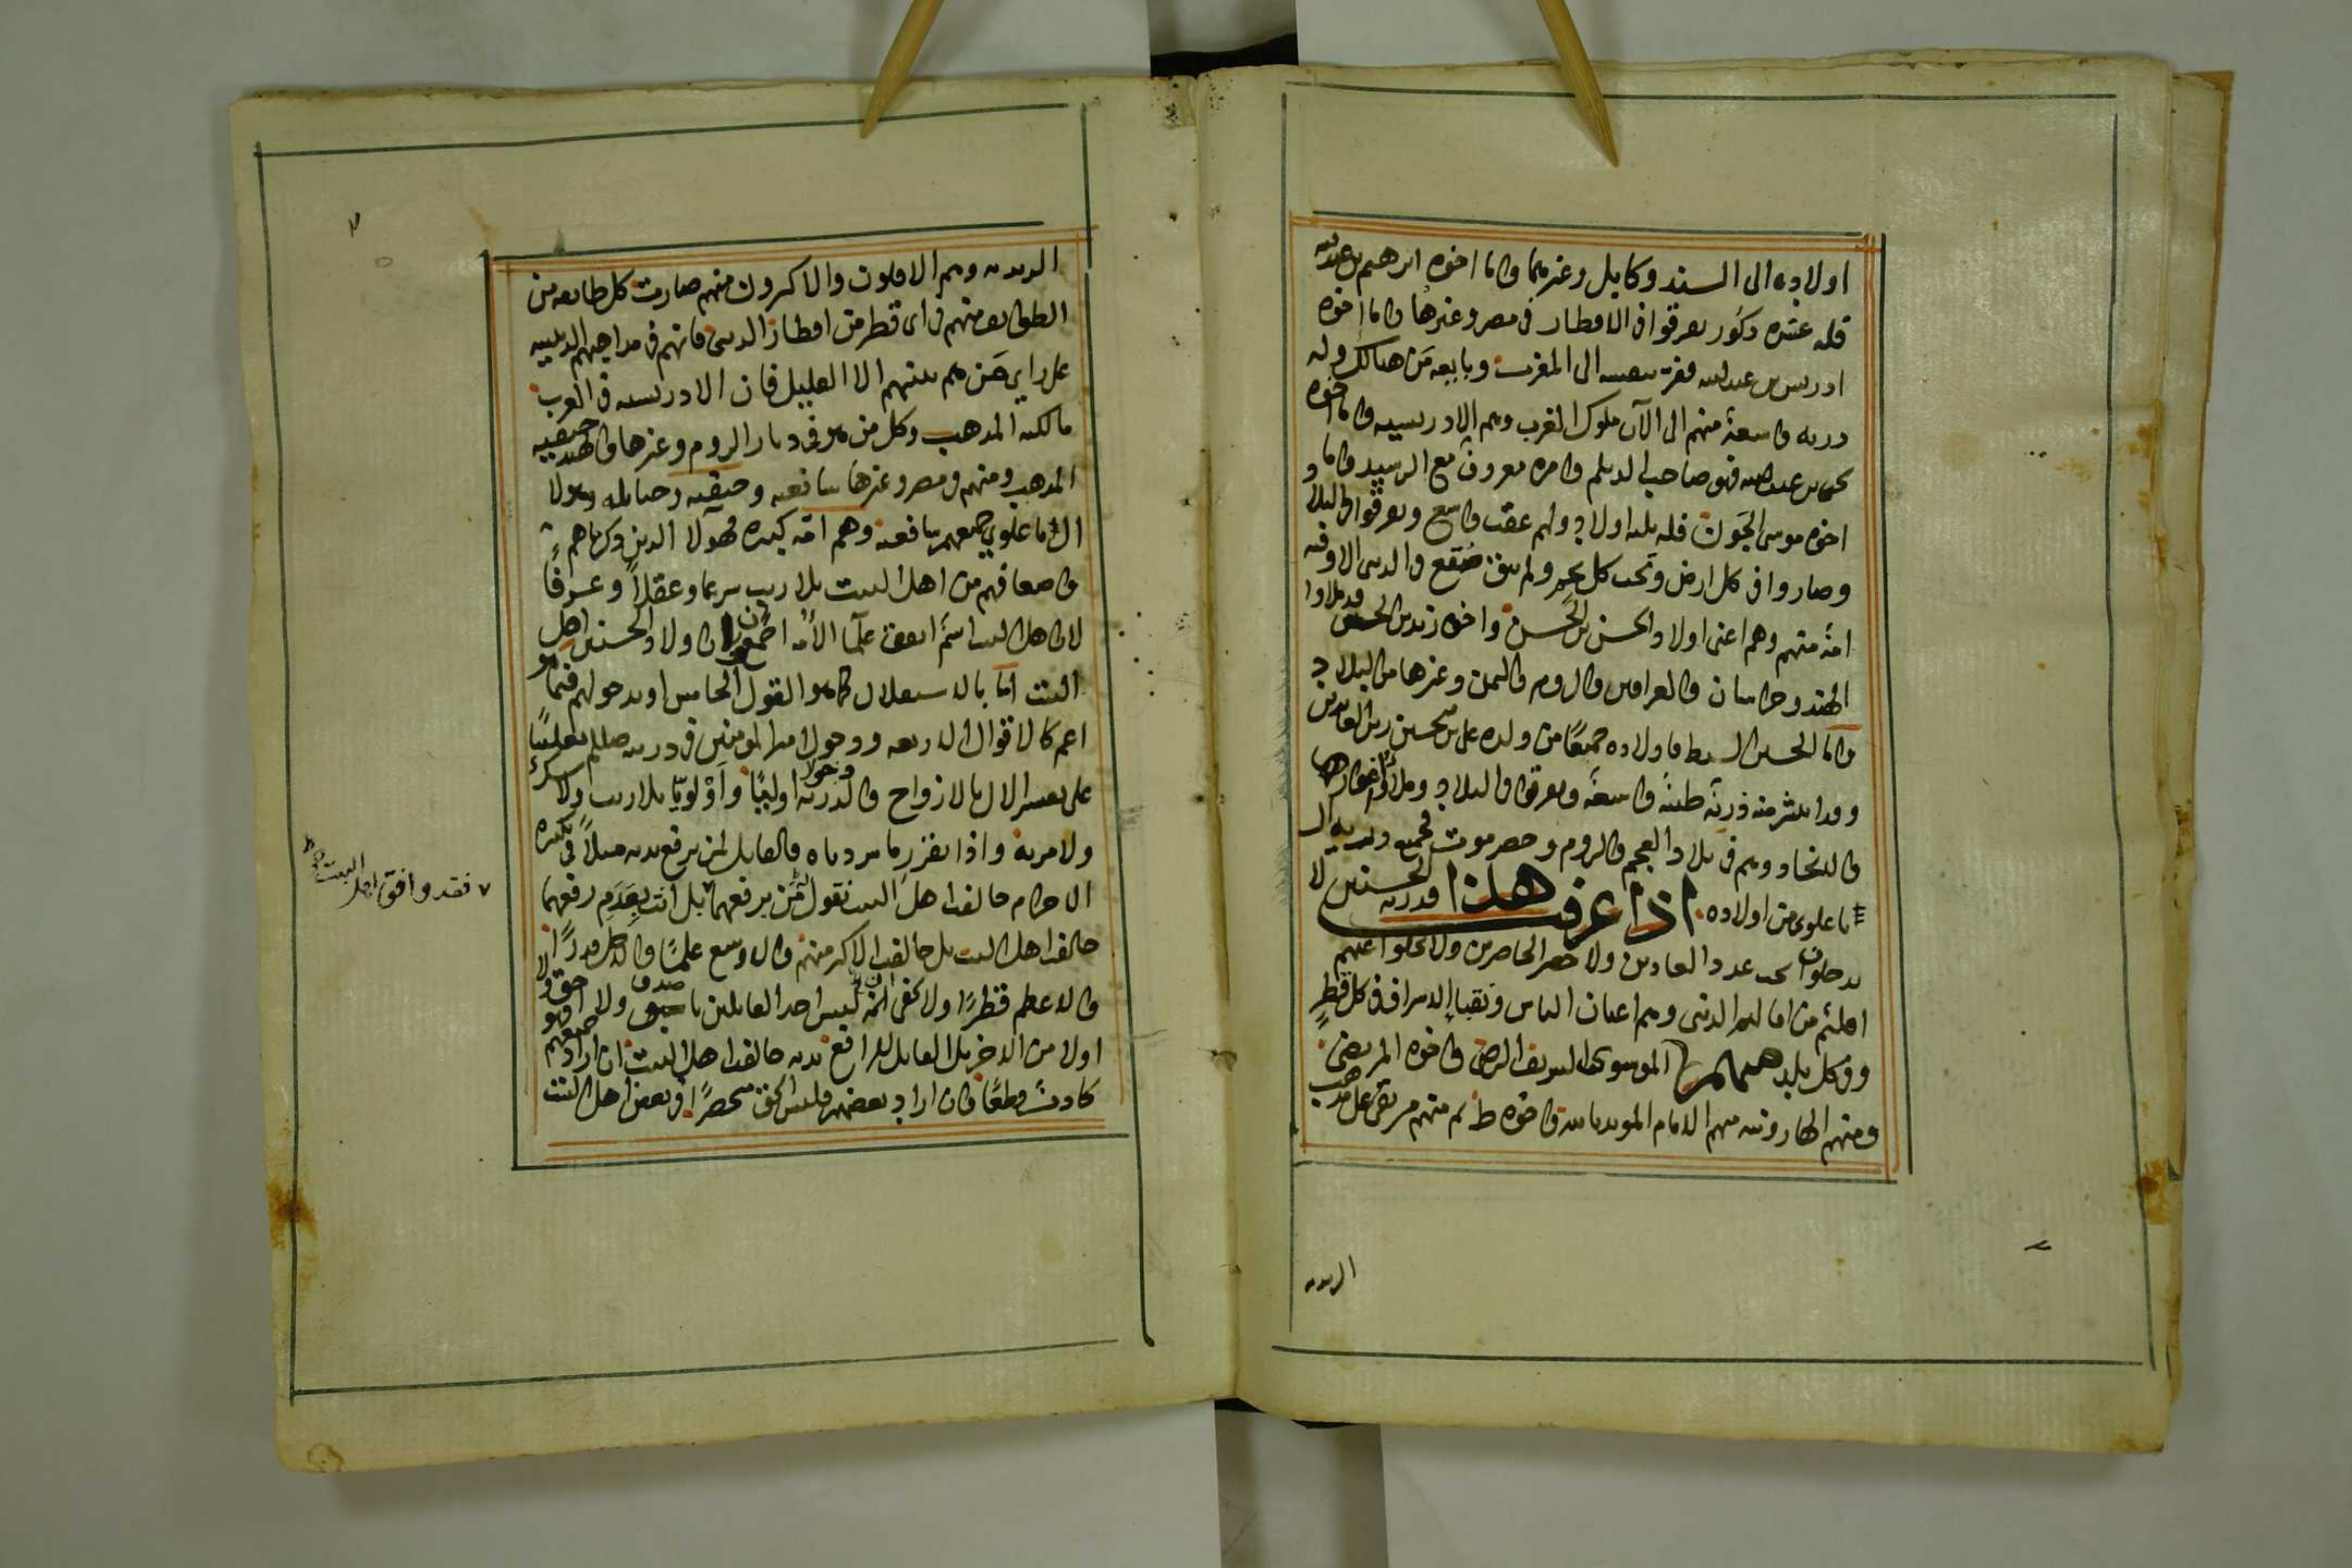 اولاده الى السند وكابل وغيرهما واما اخوه ابرهيم بن عبدالله
فله عشره ذكور تفرقوا في الاقطار في مصر وغيرها واما اخوه
ادريس بن عبدالله ففر بنفسه الى المغرب وبايعه من هنالك وله
ذريه واسعة منهم الى الآن ملوك الغرب وهم الادريسيه واما اخوه
يحيى بن عبدالله فهو صاحب الديلم وامره معروف مع الرشيد واما
اخوه موسى الجون فله ثلثه اولاد ولهم عقب واسع وتفرقوا في البلاد
وصاروا في كل ارض وتحت كل نجم ولم يبق صقع في الدنيا الا وفيه
امة منهم وهم اعني اولاد الحسن بن الحسن واخوه زيد بن الحسن قد ملاوا
الهند وخراسان والعراقين والروم واليمن وغيرها من البلاد
واما الحسين السبط فاولاده جميعًا من ولده علي بن الحسين زين العابدين
وقد انتشر منه ذريّة طيبة واسعة وتفرقوا في البلاد وملأوا
والانجاد وهم في بلاد العجم والروم وحضرموت فجميع ذريه آل
باعلوي من اولاده اذا عرفت هذا فذريه الحسنين لا
يدخلون تحت عدد العادين ولا حصر الحاصرين ولا تخلوا عنهم
اقليم من اقاليم الدنيا وهم اعيان الناس ونقباء الاشراف في كل قطر
وفي كل بلد منهم الموسوي الشريف الرضي واخوه المرتضى
ومنهم الهارونيه منهم الامام المويد بالله واخوه ط ثم منهم من بقي على مذهب
الزيديه
الزيديه وهم الاقلون والاكثرون منهم صارت كل طايفه من
الطوايف منهم في اي قطر من اقطار الدنيا فانهم في مذاهبهم الدينيه
على راي من هم بينهم الا القليل فان الادريسيه في الغرب
مالكيه المذهب وكل من هو في ديار الروم وغيرها والهند حنيفيه
المذهب ومنهم في مصر وغيرها شافعيه وحنيفيه وحنابله وهولا
آل باعلوي جميعهم شافعيه وهم امّه كبيره فهولآ الذين ذكرناهم
واضعافهم من اهل البيت بلا ريب شرعا وعقلاً وعرفًا
لان اهل البيت اسم اتفق علمآ الأمه اجمعون ان اولاد الحسنين اهل
البيت امّا بالاستقلال كما هو القول الخامس او بدخولهم فيما هو
اعم كالاقوال الاربعه ودخول امير المومنين في ذريته صللم تغليبًا
على تفسير الآل بالازواج والذريه دخولا اوليًا وأوْلويّا بلا ريب ولا شك
ولا مرية واذا تقرر ما سردناه فالقايل لمن يرفع يديه مثلاً في تكبيره
الاحرام خالفت اهل البيت نقول لمن يرفعهما بل انت بعدَم رفعهما
خالفت اهل البيت بل خالفت الاكثر منهم والاوسع علمًا والاجل قدرًا
والاعظم قطرًا ولا يخفى انه ليس احد القايلين باحق ولا
اولا من الاخر بل القايل للرافع يديه خالفت اهل البيت ان اراد جميعهم فهو
كاذب قطعًا وان اراد بعضهم فليس الحق منحصرًا في بعض اهل البيت
٧ فقد وافق اهل البيت